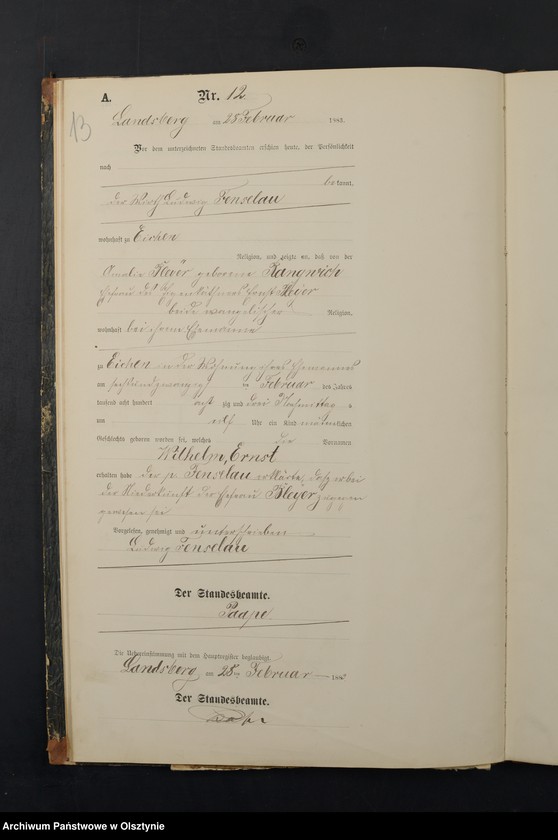 A.
Nr. 12.
13
Landsberg am 28 Februar 1883.
Vor dem unterzeichneten Standesbeamten erschien heute, der Persönlichkeit
nach
bekannt,
der Wirth Ludwig Fenselau
wohnhaft zu Eichen
Religion, und zeigte an, daß von der
Amalie Kleyer geborene Rangwich
Ehefrau des Ernst Kleyer
beide evangelischer Religion,
wohnhaft bei ihrem Ehemanne
zu Eichen in der Wohnung ihres Ehemannes
am sechsundzwanzig ten Februar des Jahres
tausend acht hundert acht zig und drei Nachmittag s
um elf Uhr ein Kind männlichen
Geschlechts geboren worden sei, welches die Vornamen
Wilhelm, Ernst
erhalten habe der p. Fenselau erklärte, daß er bei
der Niederkunft der Ehefrau Kleyer zugegen
gewesen sei
Vorgelesen, genehmigt und unterschrieben
Ludwig Fenselau
Der Standesbeamte.
Paape
Die Uebereinstimmung mit dem Hauptregister beglaubigt.
Landsberg am 28ten Februar 188
Der Standesbeamte.
Archiwum Państwowe w Olsztynie